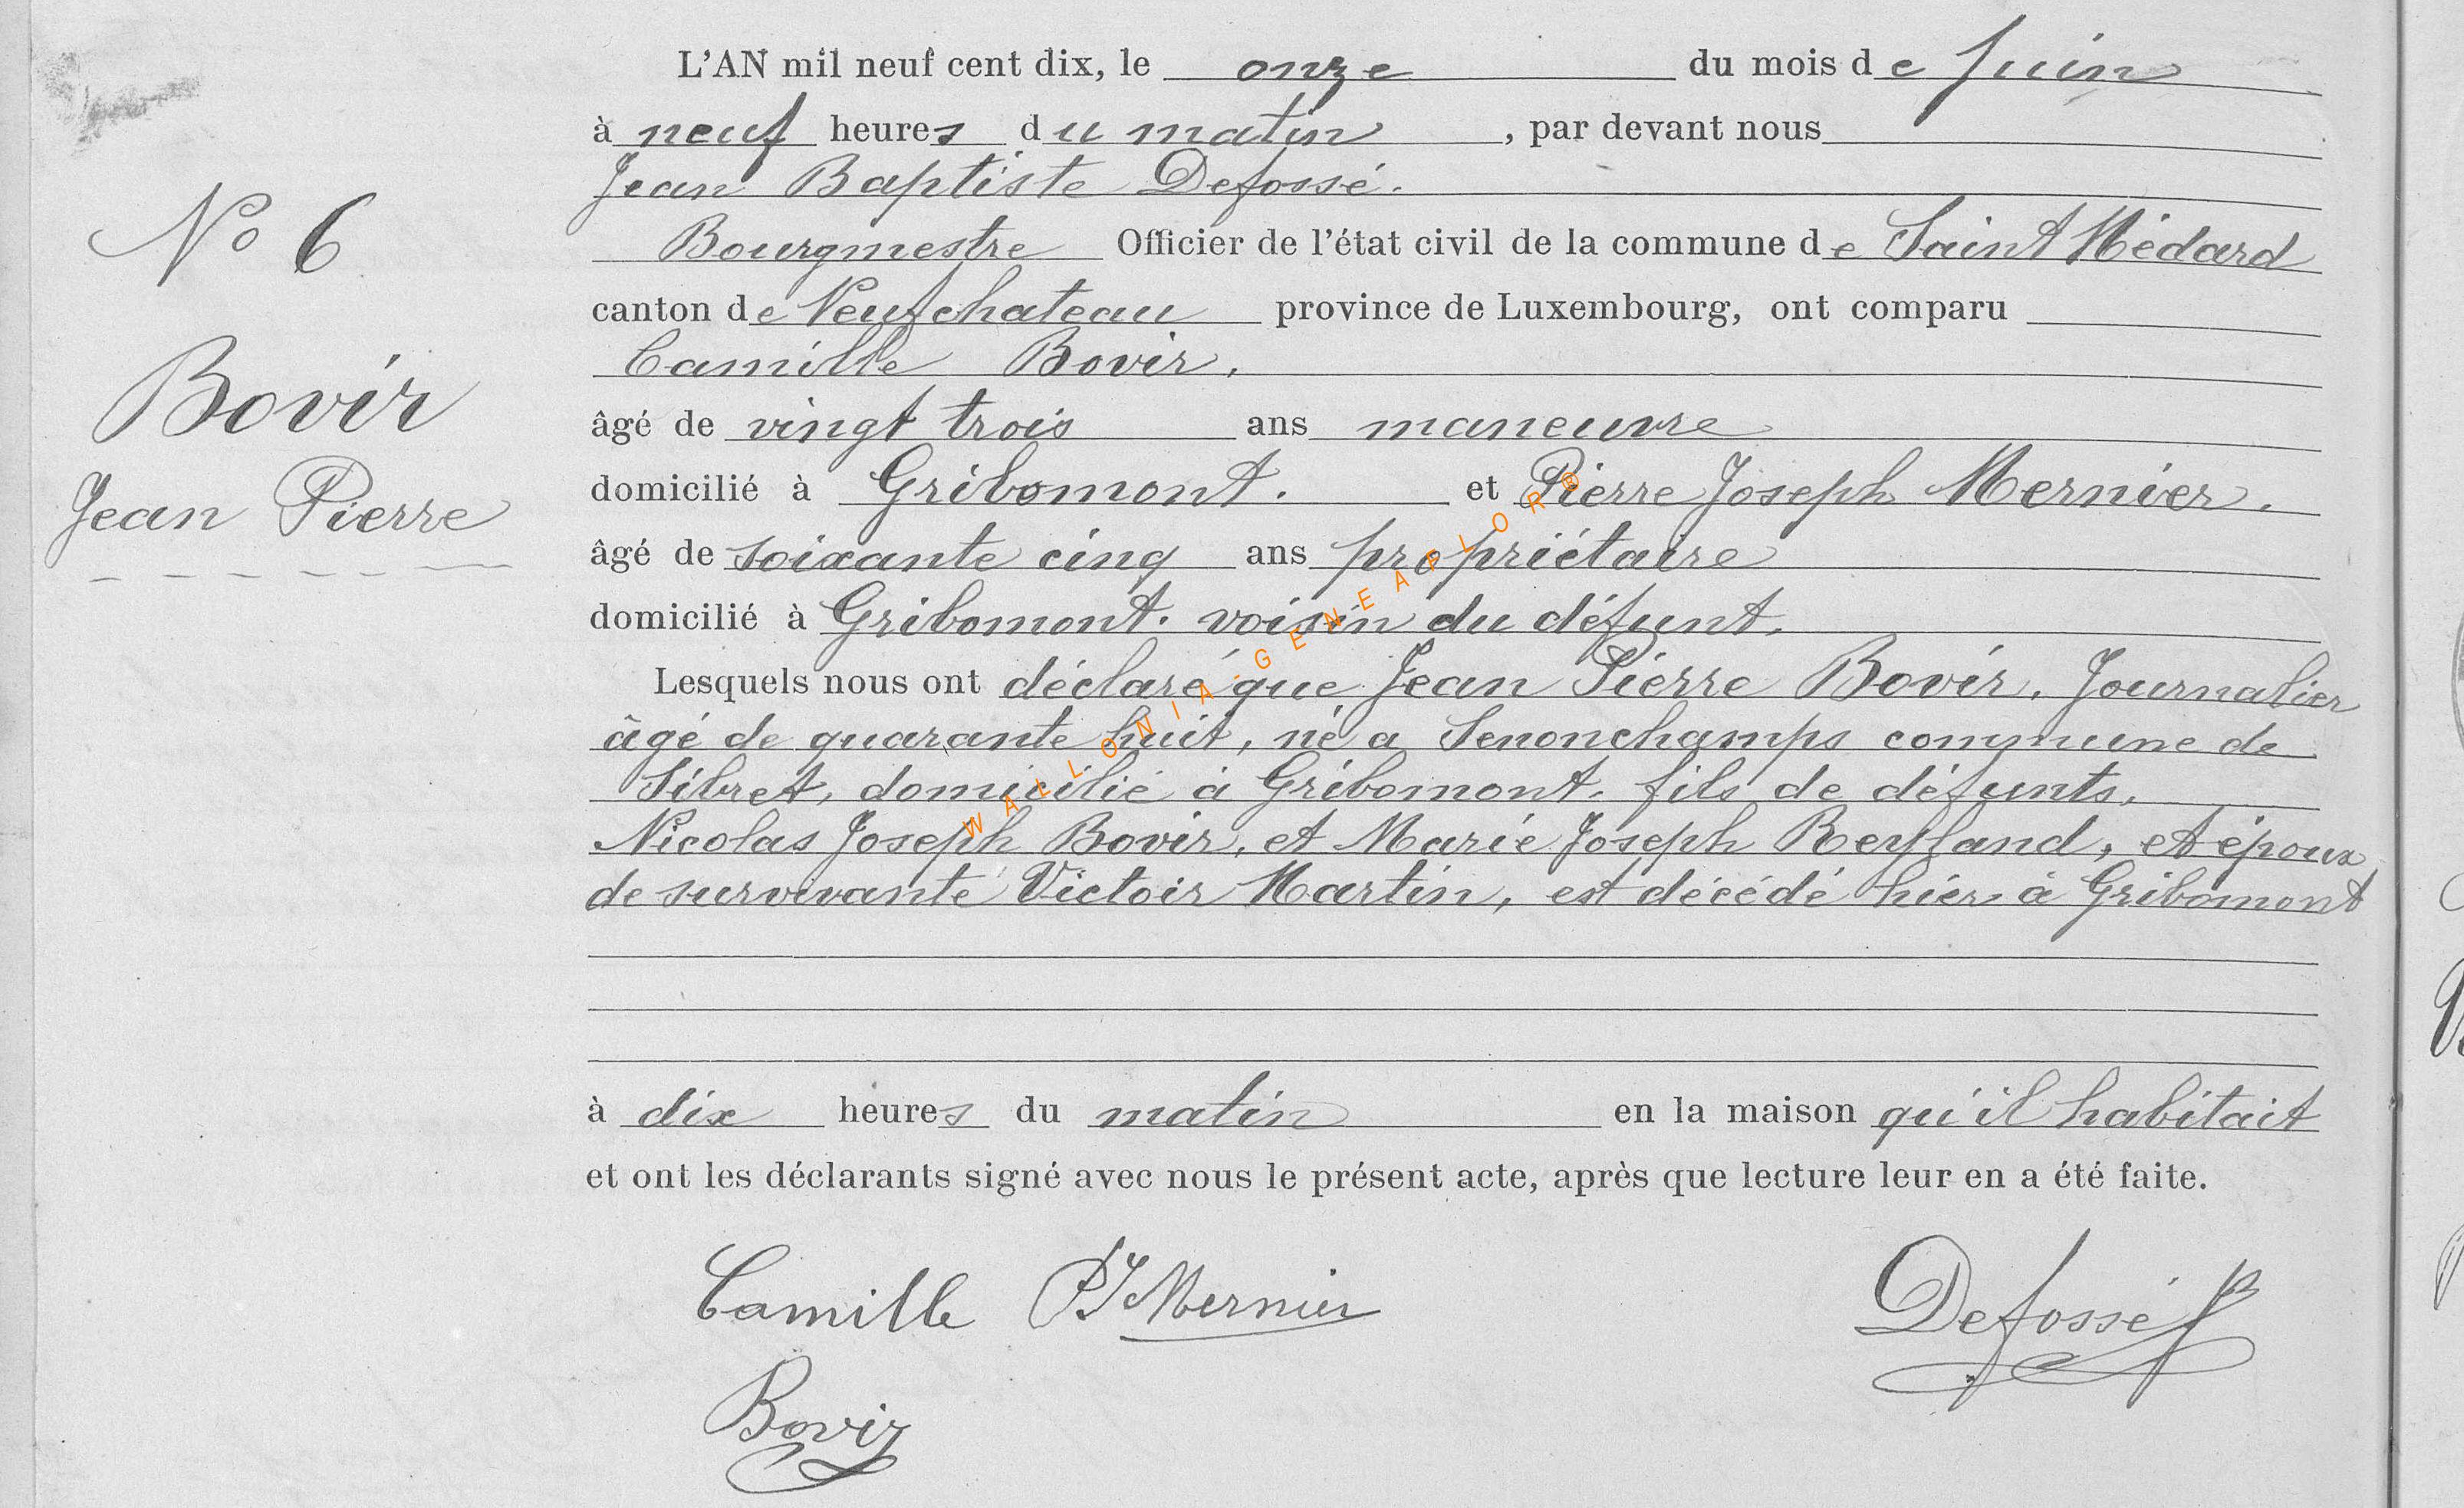 L'AN mil neuf cent dix, le onze du mois de Juin
à neuf heures du matin, par devant nous
Jean Baptiste Defossé.
N° 6
Bourgmestre Officier de l'état civil de la commune de Saint Médard
canton de Neufchateau province de Luxembourg, ont comparu
Camille Bovir,
Bovir
âgé de vingt trois ans maneuvre
Jean Pierre
domicilié à Gribomont. et Pierre Joseph Mernier.
âgé de soixante cinq ans propriétaire
domicilié à Gribomont. voisin du défunt.
Lesquels nous ont déclaré que Jean Pierre Bovir. Journalier
âgé de quarante huit, né a Senonchamps commune de
Sibret, domicilié à Gribomont. fils de défunts,
Nicolas Joseph Bovir, et Marie Joseph Reyland, et époux
de survivante Victoir Martin, est décédé hier à Gribomont
à dix heures du matin en la maison qu'il habitait
et ont les déclarants signé avec nous le présent acte, après que lecture leur en a été faite.
Camille PJ Mernier Defossé JB
Bovir
WALLONIA-GENEAFLORE®